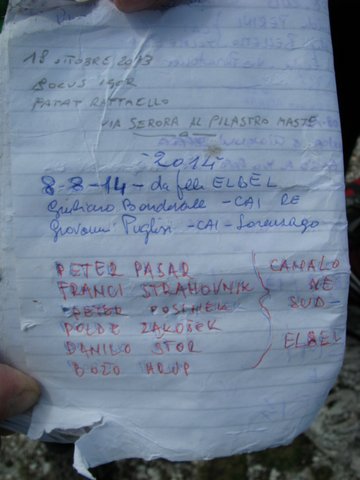 18 OTTOBRE 2013
BOCUS IGOR
PATAT RAFFAELLO
VIA SERORA AL PILASTRO MASTE
- 2014 -
8-8-14 - da f.lle ELBEL
Giubiano - CAI RE
Giovanni Puglisi - CAI - Lorenzago
PETER PASAR
FRANCI STRAHOVNIK
PETER
POLDE ZAKOŠEK
DANILO STOR
BOŽO HRUP
CANALO
NE
SUD -
ELBEL